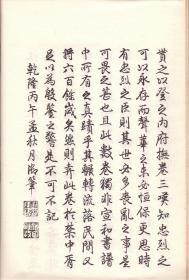 賞之以登之內府撫卷三嘆知忠烈之
可以永存而聲華之未必恒保更思時
有忠烈之臣則其世必多喪亂之事是
可畏甚也且此數卷獨非宣和書譜
中所有之真蹟乎其輾轉流落民間又
將六百餘歲矣然則弆此卷於篋中者
足以為殷鑒之警是不可不記
乾隆丙午孟秋月御筆